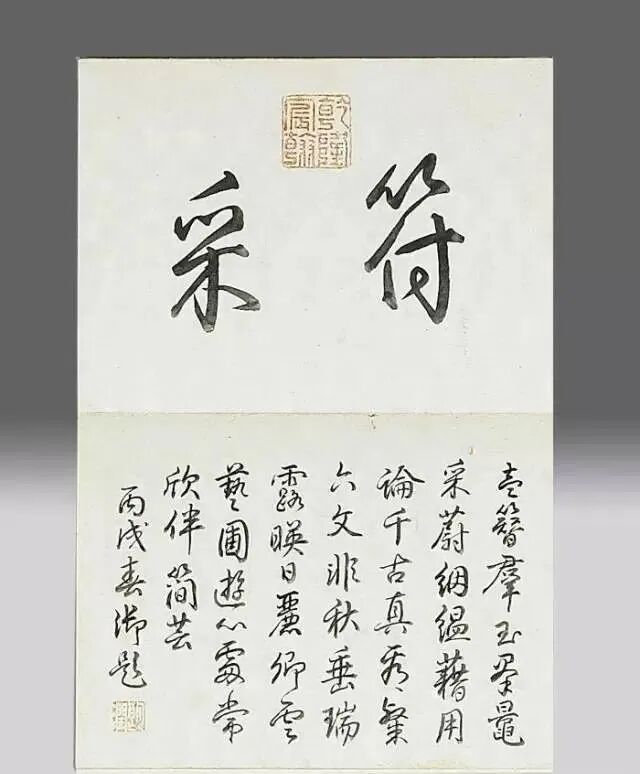 乾隆宸翰
符采
盍簪羣玉峯鼂
采蔚絪縕藉用
論千古真看粲
六文非秋垂瑞
露暎日麗卿雲
藝圃遊心處常
欣伴簡芸
丙戌春御題